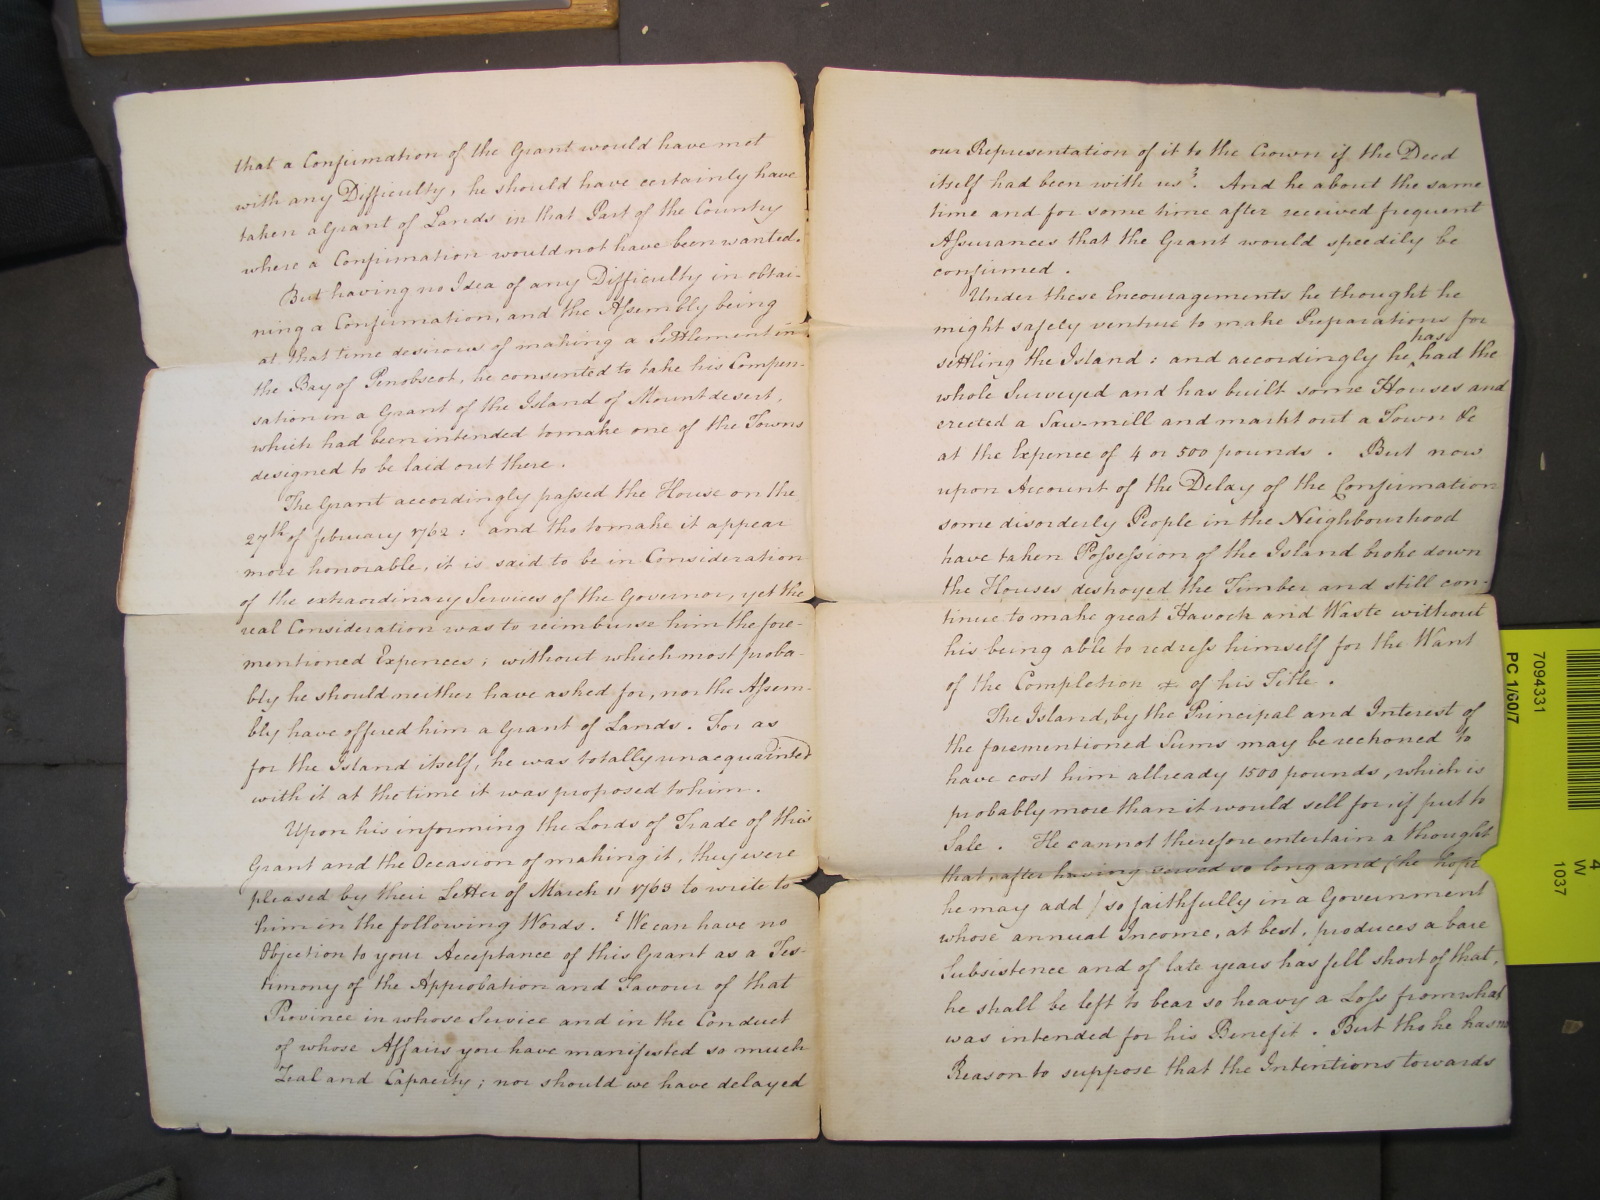 that a Confirmation of the Grant would have met
with any Difficulty, he should have certainly have
taken a Grant of Lands in that Part of the Country
where a Confirmation would not have been wanted.
But having no Idea of any Difficulty in obtai-
ning a Confirmation, and the Assembly being
at that time desirous of making a Settlement in
the Bay of Penobscot, he consented to take his Compen-
sation in a Grant of the Island of Mount desert,
which had been intended to make one of the Towns
designed to be laid out there.
The Grant accordingly passed the House on the
27th of february 1762: and tho to make it appear
more honorable, it is said to be in Consideration
of the extraordinary Services of the Governor, yet the
real Consideration was to reimburse him the fore-
mentioned Expences; without which most proba-
bly he should neither have asked for, nor the Assem-
bly have offered him a Grant of Lands. For as
for the Island itself, he was totally unacquainted
with it at the time it was proposed to him.
Upon his informing the Lords of Trade of this
Grant and the Occasion of making it, they were
pleased by their Letter of March 11 1763 to write to
him in the following Words. "We can have no
Objection to your Acceptance of this Grant as a Tes-
timony of the Approbation and Favour of that
Province in whose Service and in the Conduct
of whose Affairs you have manifested so much
Zeal and Capacity; nor should we have delayed
our Representation of it to the Crown if the Deed
itself had been with us". And he about the same
time and for some time after received frequent
Assurances that the Grant would speedily be
confirmed.
Under these Encouragements he thought he
might safely venture to make Preparations for
has
settling the Island: and accordingly he had the
whole Surveyed and has built some Houses and
erected a Saw-mill and markt out a Town &c
at the Expence of 4 or 500 pounds. But now
upon Account of the Delay of the Confirmation
some disorderly People in the Neighbourhood
have taken Possession of the Island broke down
the Houses destroyed the Timber and still con-
tinue to make great Havock and Waste without
his being able to redress himself for the Want
of the Completion of his Title.
The Island, by the Principal and Interest of
the forementioned Sums may be reckoned to
have cost him allready 1500 pounds, which is
probably more than it would sell for, if put to
Sale. He cannot therefore entertain a thought
that, after having served so long and (he hopes
he may add) so faithfully in a Government
whose annual Income, at best, produces a bare
Subsistence and of late years has fell short of that,
he shall be left to bear so heavy a Loss from what
was intended for his Benefit. But tho he has no
Reason to suppose that the Intentions towards
7094331
PC 1/60/7
4
W
1037